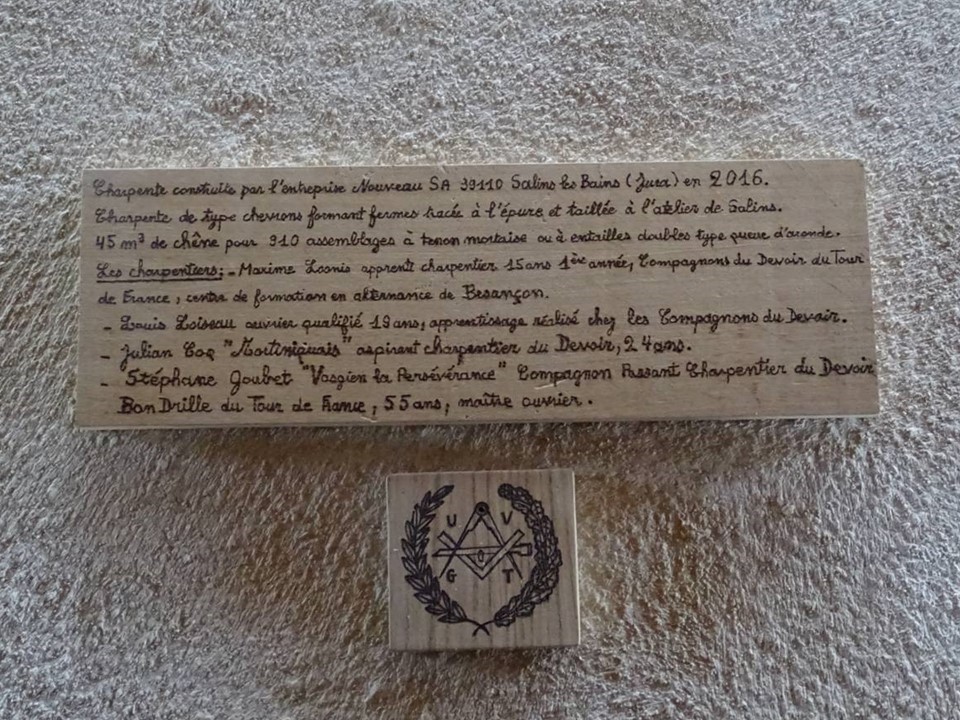 Charpente construite par l'entreprise Nouveau SA 39110 Salins les Bains (Jura) en 2016.
Charpente de type chevrons formant fermes tracée à l'épure et taillée à l'atelier de Salins.
45 m³ de chêne pour 910 assemblages à tenon mortaise ou à entailles doubles type queue d'aronde.
Les charpentiers: - Maxime apprenti charpentier 15 ans 1ère année, Compagnons du Devoir du Tour
de France, centre de formation en alternance de Besançon.
- Louis Loiseau ouvrier qualifié 19 ans, apprentissage réalisé chez les Compagnons du Devoir.
- Julian Coq "Martiniquais" aspirant charpentier du Devoir, 24 ans.
- Stéphane Goubet "Vosgien la Persévérance" Compagnon Passant Charpentier du Devoir
Bon Drille du Tour de France, 55 ans, maître ouvrier.
U V
G T